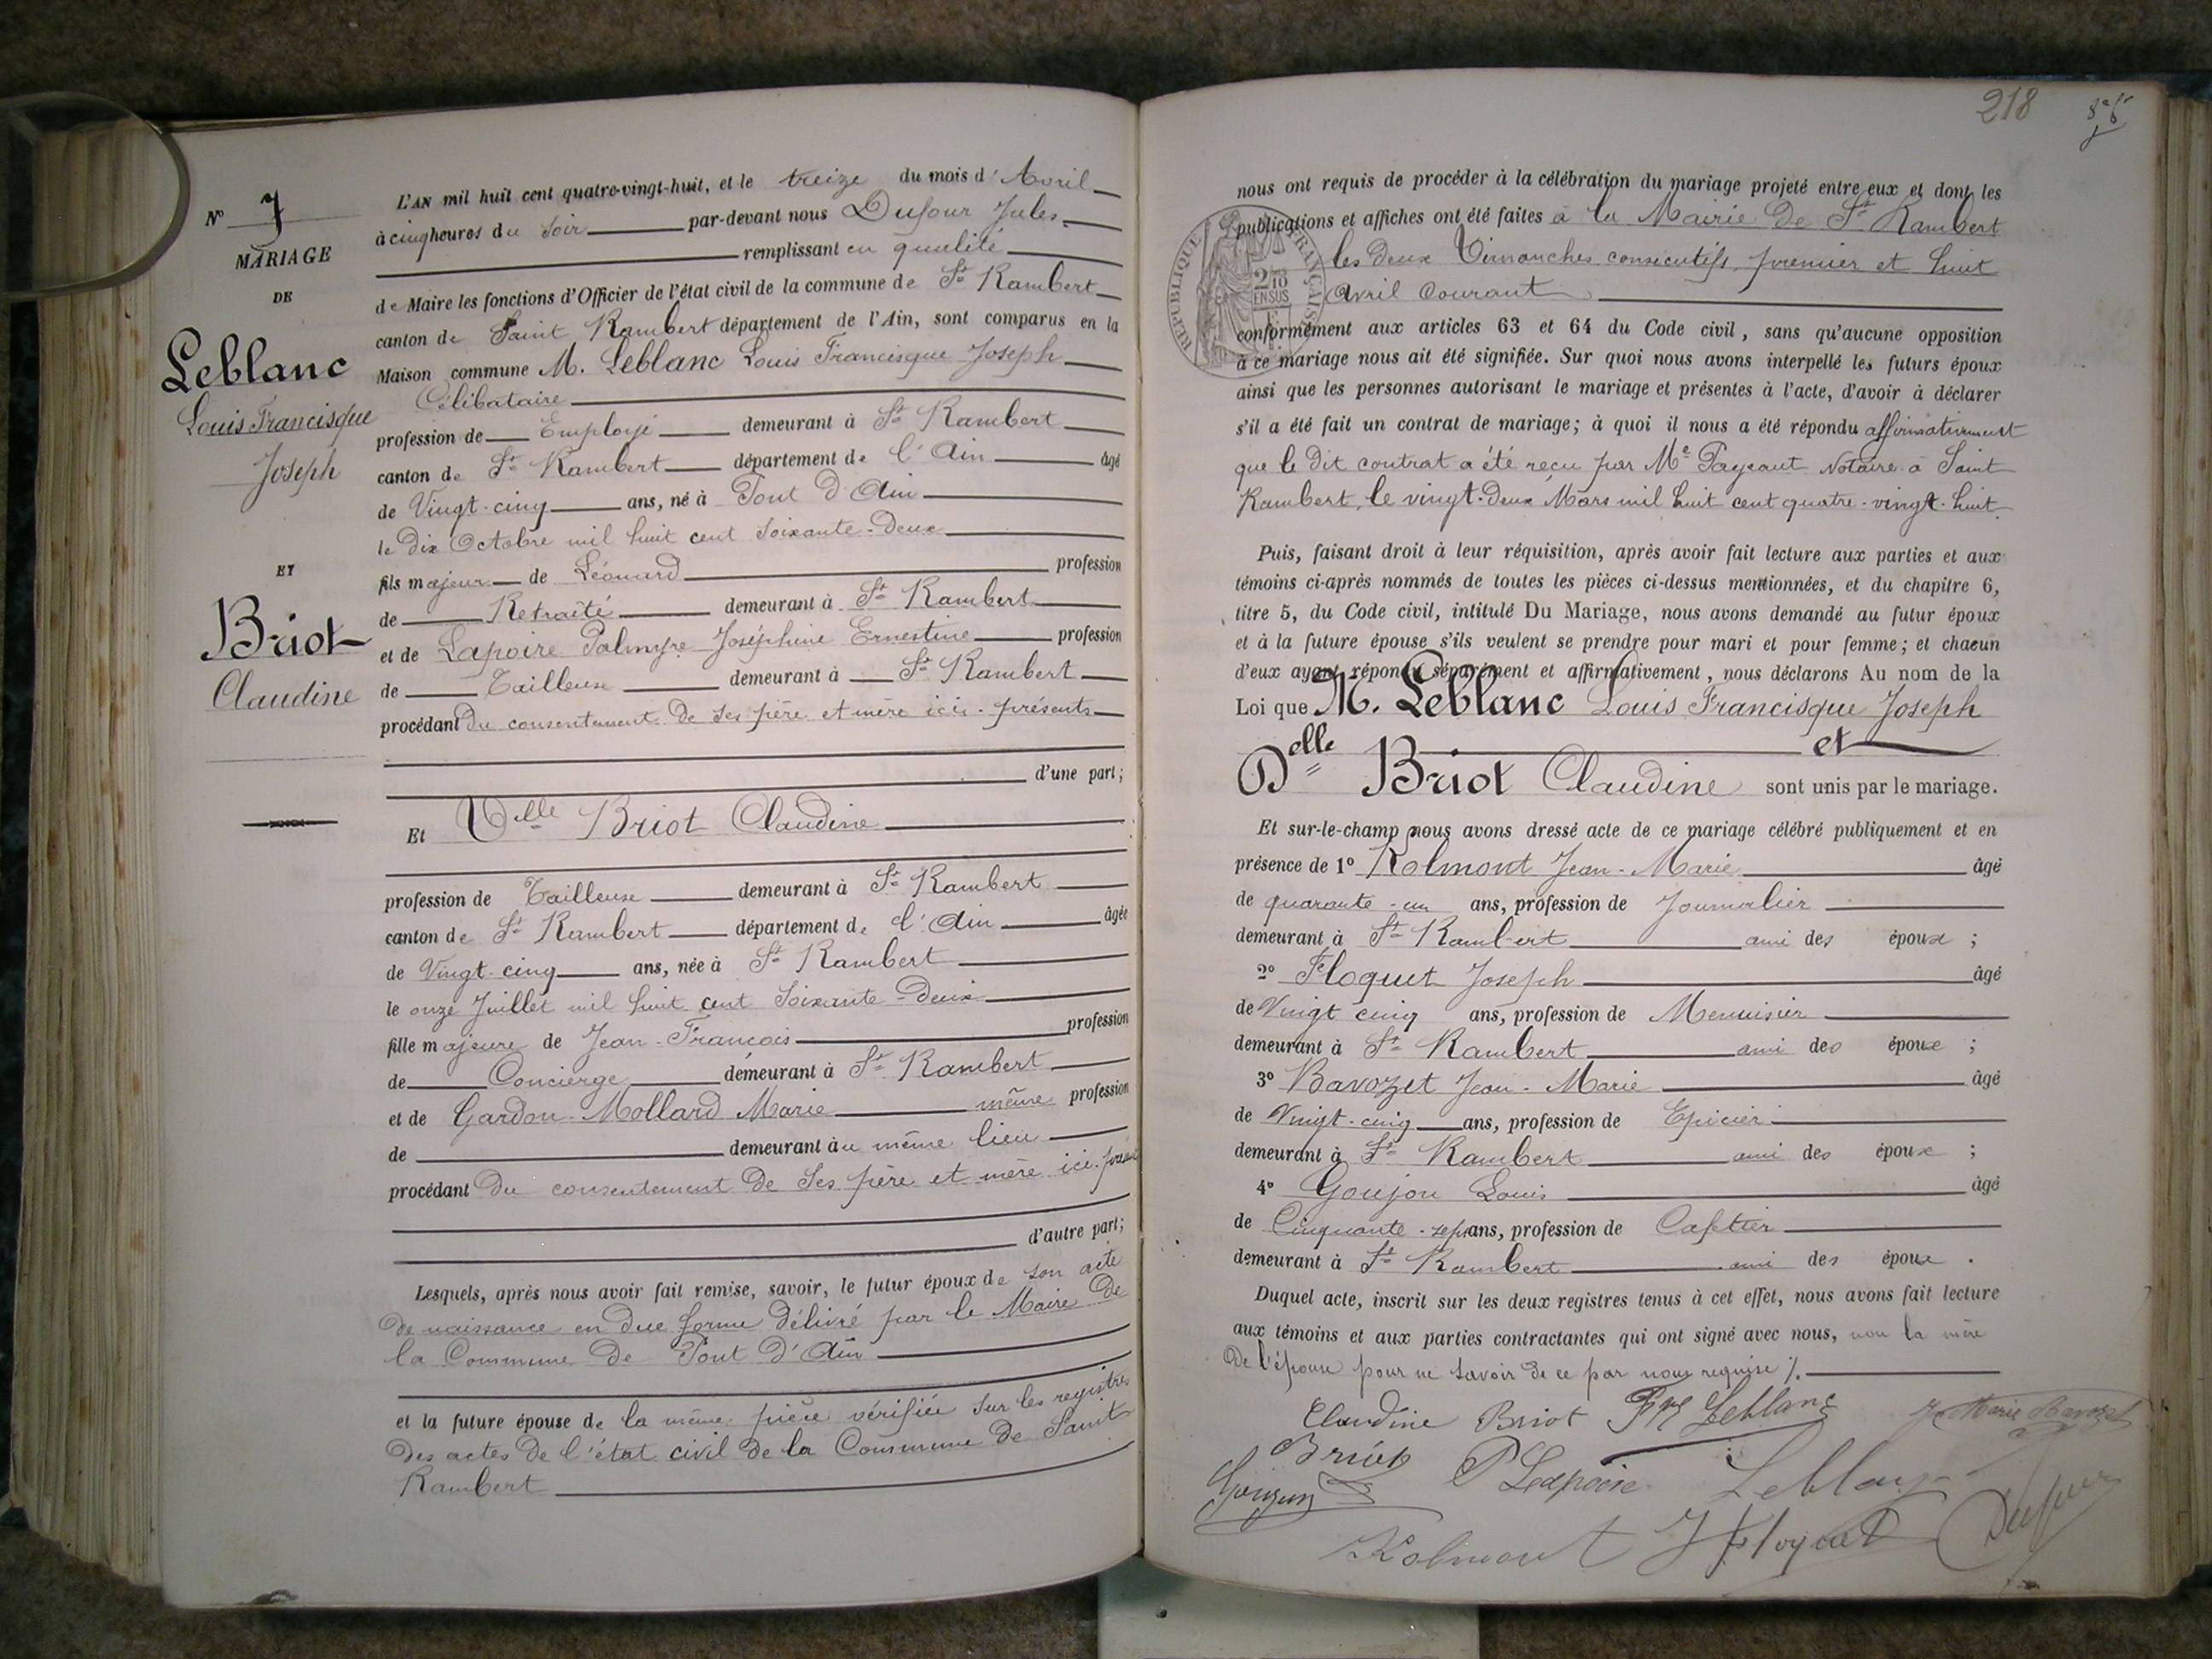 N° 7
MARIAGE
DE
Leblanc
Louis Francisque
Joseph
ET
Briot
Claudine
L'AN mil huit cent quatre-vingt-huit, et le treize du mois d'Avril
à cinq heures du soir par-devant nous Dufour Jules
remplissant en qualité
de Maire les fonctions d'Officier de l'état civil de la commune de St Rambert
canton de Saint Rambert département de l'Ain, sont comparus en la
Maison commune M. Leblanc Louis Francisque Joseph
Célibataire
profession de Employé demeurant à St Rambert
canton de St Rambert département de l'Ain âgé
de Vingt-cinq ans, né à Pont d'Ain
le dix Octobre mil huit cent soixante-deux
fils majeur de Léonard profession
de Retraité demeurant à St Rambert
et de Lapoire Palmyre Joséphine Ernestine profession
de Tailleuse demeurant à St Rambert
procédant du consentement de ses père et mère ici présents
d'une part;
Et Delle Briot Claudine
profession de Tailleuse demeurant à St Rambert
canton de St Rambert département de l'Ain âgée
de Vingt-cinq ans, née à St Rambert
le onze Juillet mil huit cent soixante-deux
fille majeure de Jean-François profession
de Concierge demeurant à St Rambert
et de Gardon-Mollard Marie même profession
de demeurant au même lieu
procédant du consentement de ses père et mère ici
d'autre part;
Lesquels, après nous avoir fait remise, savoir, le futur époux de son acte
de naissance en due forme délivré par le Maire de
la Commune de Pont d'Ain
et la future épouse de la même pièce vérifiée sur les registres
des actes de l'état civil de la Commune de Saint
Rambert
218
nous ont requis de procéder à la célébration du mariage projeté entre eux et dont les
publications et affiches ont été faites à la Mairie de St Rambert
les deux Dimanches consécutifs premier et huit
avril courant
conformément aux articles 63 et 64 du Code civil, sans qu'aucune opposition
à ce mariage nous ait été signifiée. Sur quoi nous avons interpellé les futurs époux
ainsi que les personnes autorisant le mariage et présentes à l'acte, d'avoir à déclarer
s'il a été fait un contrat de mariage; à quoi il nous a été répondu affirmativement
que le dit contrat a été reçu par Me Notaire à Saint
Rambert, le vingt-deux Mars mil huit cent quatre-vingt-huit
Puis, faisant droit à leur réquisition, après avoir fait lecture aux parties et aux
témoins ci-après nommés de toutes les pièces ci-dessus mentionnées, et du chapitre 6,
titre 5, du Code civil, intitulé Du Mariage, nous avons demandé au futur époux
et à la future épouse s'ils veulent se prendre pour mari et pour femme; et chacun
d'eux ayant répondu séparément et affirmativement, nous déclarons Au nom de la
Loi que M. Leblanc Louis Francisque Joseph
et
Delle Briot Claudine sont unis par le mariage.
Et sur-le-champ nous avons dressé acte de ce mariage célébré publiquement et en
présence de 1° Kolmont Jean-Marie âgé
de quarante-un ans, profession de Journalier
demeurant à St Rambert ami des époux ;
2° Floquet Joseph âgé
de Vingt cinq ans, profession de Menuisier
demeurant à St Rambert ami des époux ;
3° Bavozet Jean-Marie âgé
de Vingt-cinq ans, profession de Epicier
demeurant à St Rambert ami des époux ;
4° Goujon Louis âgé
de Cinquante-sept ans, profession de Cafetier
demeurant à St Rambert ami des époux .
Duquel acte, inscrit sur les deux registres tenus à cet effet, nous avons fait lecture
aux témoins et aux parties contractantes qui ont signé avec nous, non la mère
de l'épouse pour ne savoir de ce par nous requise
Claudine Briot Leblanc J Marie Bavozet
Briot P Lapoire Leblanc
Goujon Dufour
Kolmont J Floquet
RÉPUBLIQUE FRANÇAISE
2/10
EN SUS